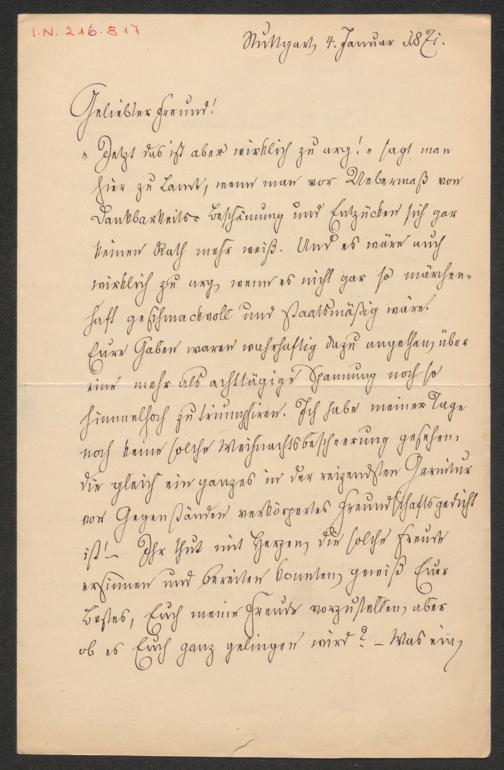 I.N. 216.817
Stuttgart, 4. Januar 1871.
Geliebter Freund!
„Jetzt das ist aber wirklich zu arg!" sagt man
hier zu Land, wenn man vor Uebermaß von
Dankbarkeits- Beschämung und Entzücken sich gar
keinen Rath mehr weiß. Und es wäre auch
wirklich zu arg, wenn es nicht gar so märchen-
haft geschmackvoll und staatsmäßig wäre.
Eure Gaben waren wahrhaftig dazu angethan, über
eine mehr als achttägige Spannung noch so
himmelhoch zu triumphiren. Ich habe meiner Tage
noch keine solche Weihnachtsbescheerung gesehen,
die gleich ein ganzes in der reizendsten Garnitur
von Gegenständen verkörpertes Freundschaftsgedicht
ist! – Ihr thut mit Herzen, die solche Freude
ersinnen und bereiten konnten, gewiß Euer
Bestes, Euch meine Freude vorzustellen, aber
ob es Euch ganz gelingen wird? – Was ein,